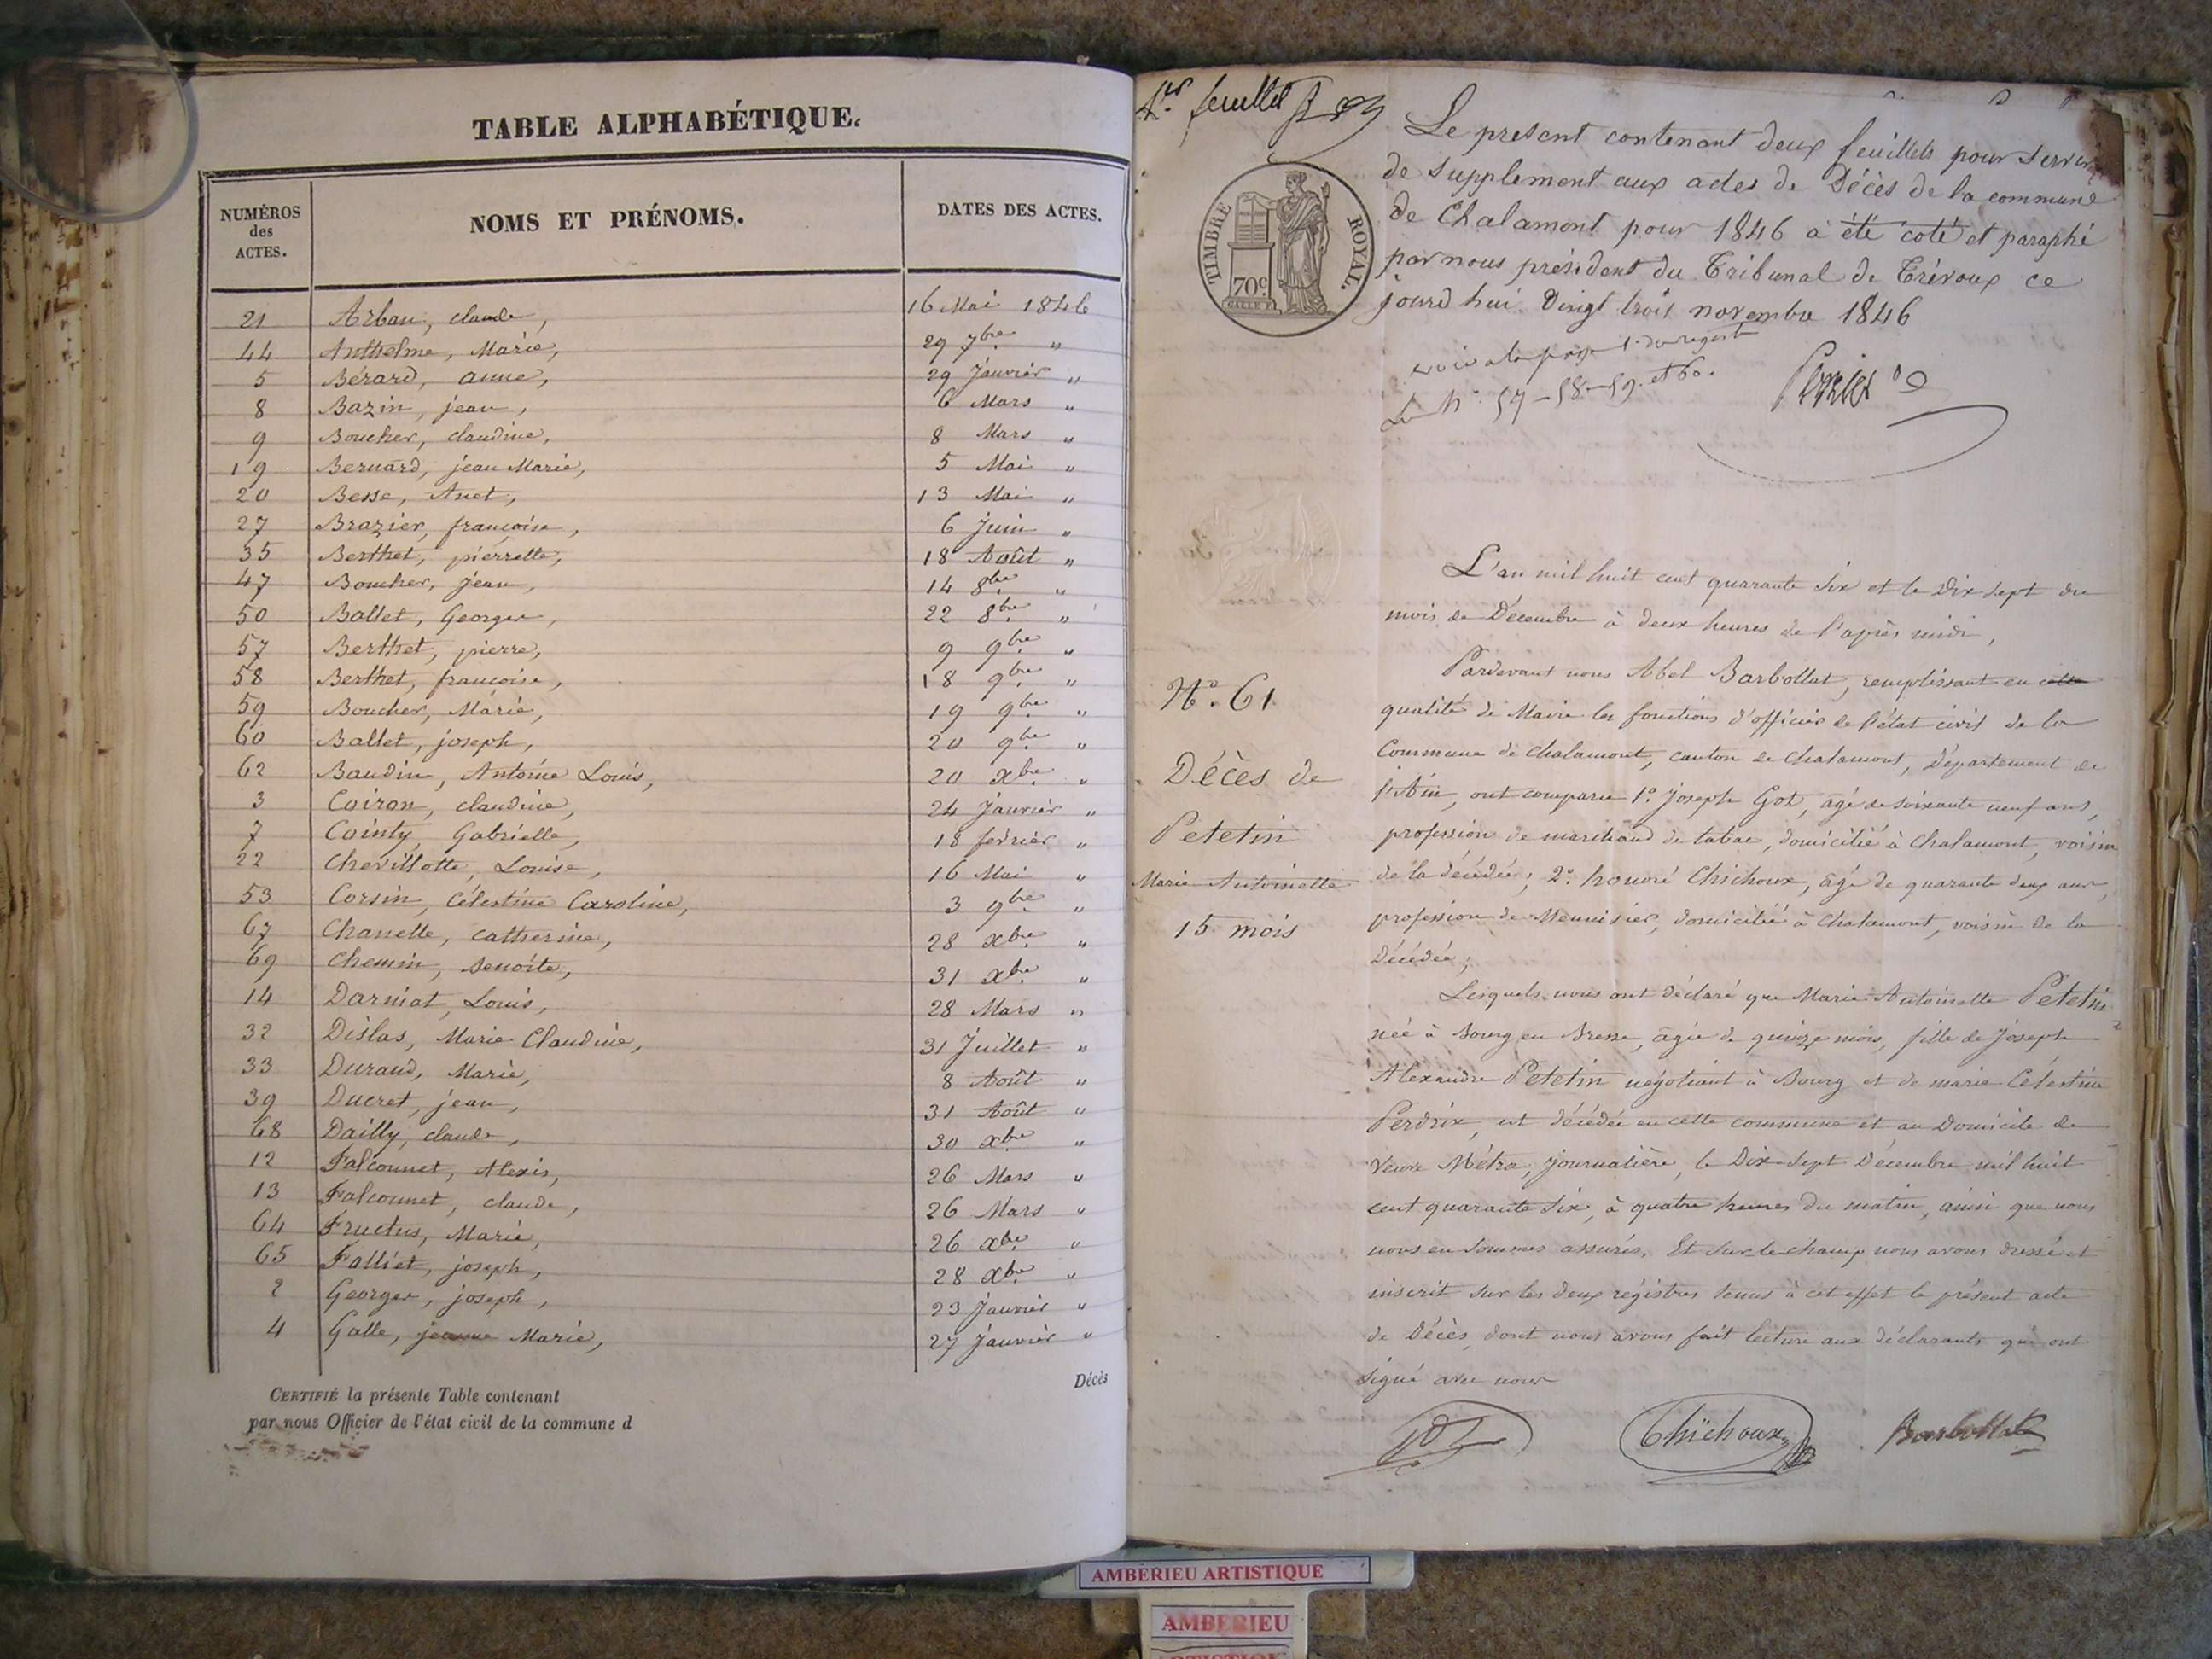 TABLE ALPHABÉTIQUE.
NUMÉROS des ACTES.
NOMS ET PRÉNOMS.
DATES DES ACTES.
21 Arban, claude, 16 Mai 1846
44 Anthelme, Marie, 29 7bre "
5 Bérard, anne, 29 Janvier "
8 Bazin, jean, 6 Mars "
9 Boucher, claudine, 8 Mars "
19 Bernard, jean Marie, 5 Mai "
20 Besse, Anet, 13 Mai "
27 Brazier, françoise, 6 Juin "
35 Berthet, pierrette, 18 Août "
47 Boucher, Jean, 14 8bre "
50 Ballet, George, 22 8bre "
57 Berthet, pierre, 9 9bre "
58 Berthet, françoise, 18 9bre "
59 Boucher, Marie, 19 9bre "
60 Ballet, joseph, 20 9bre "
62 Baudin, Antoine Louis, 20 xbre "
3 Coiron, claudine, 24 Janvier "
7 Cointy, Gabrielle, 18 février "
22 Chevillotte, Louise, 16 Mai "
53 Corsin, Célestine Caroline, 3 9bre "
67 Chanelle, catherine, 28 xbre "
69 Chemin, Benoite, 31 xbre "
14 Darniat, Louis, 28 Mars "
32 Dislas, Marie Claudine, 31 Juillet "
33 Durand, Marie, 8 Août "
39 Ducret, jean, 31 Août "
68 Dailly, claude, 30 xbre "
12 Falconnet, Alexis, 26 Mars "
13 Falconnet, claude, 26 Mars "
64 Fructus, Marie, 26 xbre "
65 Falliet, joseph, 28 xbre "
2 George, joseph, 23 Janvier "
4 Galle, jeanne Marie, 27 Janvier "
Décès
CERTIFIÉ la présente Table contenant
par nous Officier de l'état civil de la commune d
1er feuillet
TIMBRE ROYAL.
70c
Le présent contenant deux feuillets pour servir
de Supplement aux actes de Décès de la commune
de Chalamont pour 1846 a été coté et paraphé
par nous président du Tribunal de Trévoux ce
jourd'hui vingt trois novembre 1846
voir à la page 1 du regist
Le Nos 57-58-59 et 60.
Perrier
L'an mil huit cent quarante six et le Dix Sept du
mois de Décembre à deux heures de l'après midi,
Pardevant nous Abel Barbollat, remplissant en cette
qualité de Maire les fonctions d'officier de l'état civil de la
Commune de chalamont, canton de chalamont, Département de
l'Ain, ont comparu 1º. joseph Got, âgé de soixante neuf ans,
profession de marchand de tabac, domicilié à Chalamont, voisin
de la décédée; 2º. honoré Chichoux, âgé de quarante deux ans,
profession de Menuisier, domicilié à Chalamont, voisin de la
Décédée;
Nº. 61
Décès de
Petetin
Marie Antoinette
15 mois
Lesquels nous ont déclaré que Marie Antoinette Petetin
née à Bourg en Bresse, âgée de quinze mois, fille de Joseph
Alexandre Petetin négotiant à Bourg et de marie Célestine
Perdrix, est décédée en cette commune et au Domicile de
Veuve Métra, journalière, le Dix Sept Décembre mil huit
cent quarante Six, à quatre heures du matin, ainsi que nous
nous en sommes assurés. Et sur le champ nous avons dressé et
inscrit sur les deux régistres tenus à cet effet le présent acte
de Décès, dont nous avons fait lecture aux déclarants qui ont
signé avec nous
Got
Chichoux
Barbollat
AMBERIEU ARTISTIQUE
AMBERIEU
ARTISTIQUE